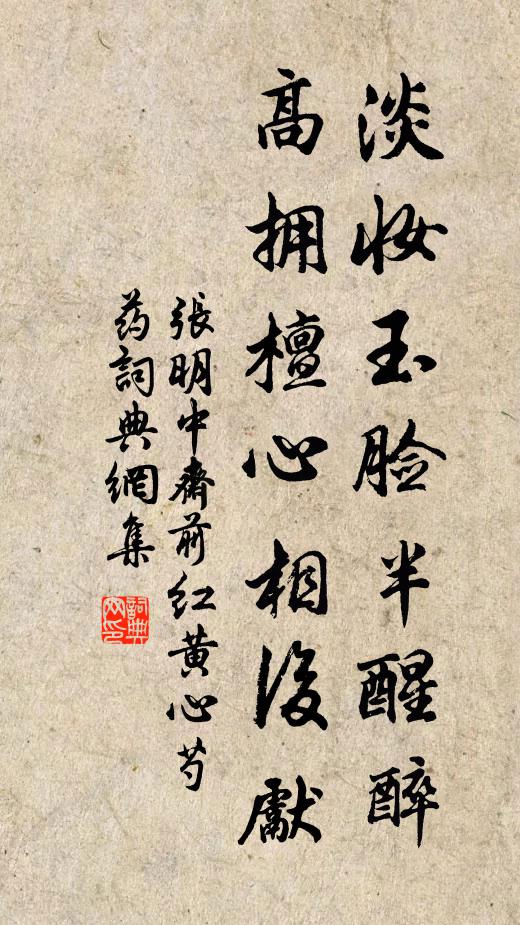 淡妆玉脸半醒醉
高拥檀心相後獻
張明中齋前红黄心芍
药詞典網集
詞典网印